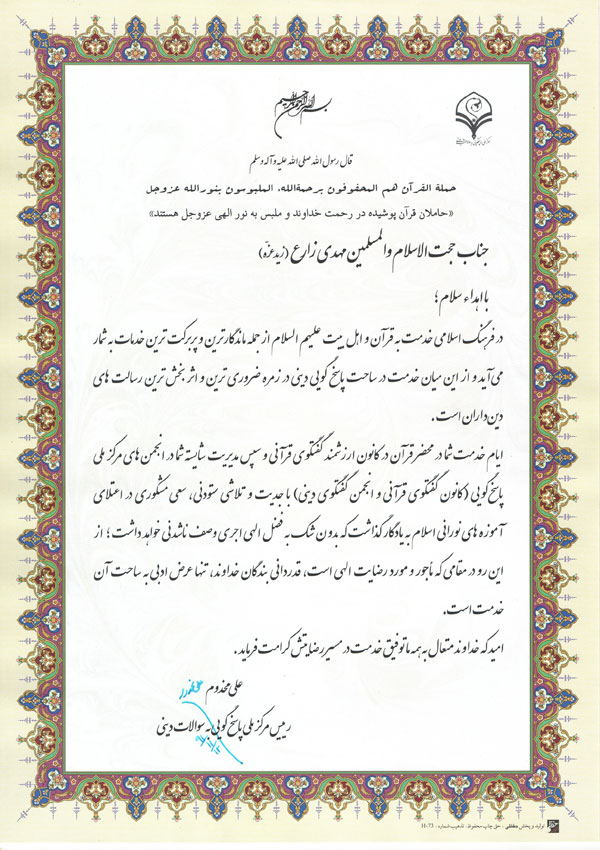 بسم الله الرحمن الرحیم
قال رسول الله صلی الله علیه و آله وسلم
حملة القرآن هم المحفوفون برحمةالله، الملبوسون بنورالله عزوجل
«حاملان قرآن پوشیده در رحمت خداوند و ملبس به نور الهی عزوجل هستند»
جناب حجت الاسلام والمسلمین مهدی زارع (زید عزّه)
با اهداء سلام؛
در فرهنگ اسلامی خدمت به قرآن و اهل بیت علیهم السلام از جمله ماندگارترین و پربرکت ترین خدمات به شمار
می آید و از این میان خدمت در ساحت پاسخ گویی دینی در زمره ضروری ترین و اثربخش ترین رسالت های
دین داران است.
ایام خدمت شما در محضر قرآن در کانون ارزشمند گفتگوی قرآنی و سپس مدیریت شایسته شما در انجمن های مرکز ملی
پاسخ گویی (کانون گفتگوی قرآنی و انجمن گفتگوی دینی) با جدیت و تلاشی ستودنی، سعی مشکوری در اعتلای
آموزه های نورانی اسلام به یادگار گذاشت که بدون شک به فضل الهی اجری وصف ناشدنی خواهد داشت؛ از
این رو در مقامی که مأجور و مورد رضایت الهی است، قدردانی بندگان خداوند، تنها عرض ادبی به ساحت آن
خدمت است.
امید که خداوند متعال به همه ما توفیق خدمت در مسیر رضایتش کرامت فرماید.
علی مخدوم
رییس مرکز ملی پاسخ گویی به سوالات دینی
تولید و پخش حقانی - حق چاپ محفوظ. تذهیب شماره: H-73